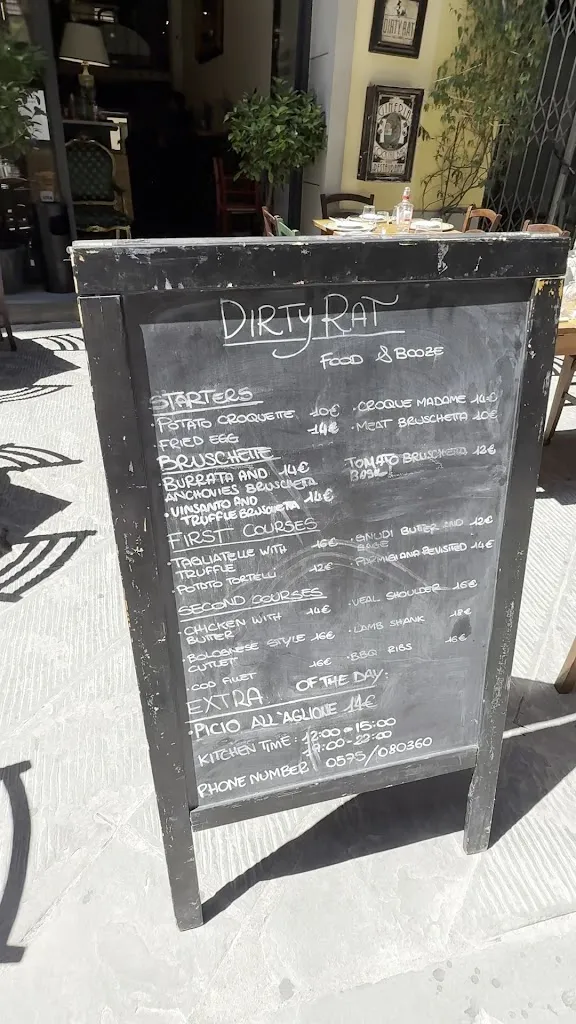 DIRTY RAT
DIRTY RAT
FOOD & BOOZE
STARTERS
· POTATO CROQUETTE 10€
FRIED EGG 14€
· CROQUE MADAME 14€
· MEAT BRUSCHETTA 10€
BRUSCHETTE
BURRATA AND 14€
ANCHOVIES BRUSCHETTA
· VINSANTO AND 14€
TRUFFLE BRUSCHETTA
TOMATO BRUSCHETTA 12€
BASIL
FIRST COURSES
· TAGLIATELLE WITH 16€
TRUFFLE
· POTATO TORTELLI 12€
· GNUDI BUTTER AND 12€
SAGE
· PARMIGIANA REVISITED 14€
SECOND COURSES
· CHICKEN WITH 14€
BUTTER
· BOLOGNESE STYLE 16€
CUTLET
· COD FILLET 16€
· VEAL SHOULDER 16€
· LAMB SHANK 18€
· BBQ RIBS 16€
EXTRA OF THE DAY:
· PICIO ALL'AGLIONE 14€
KITCHEN TIME: 12:00-15:00
19:00-22:00
PHONE NUMBER 0575/080360